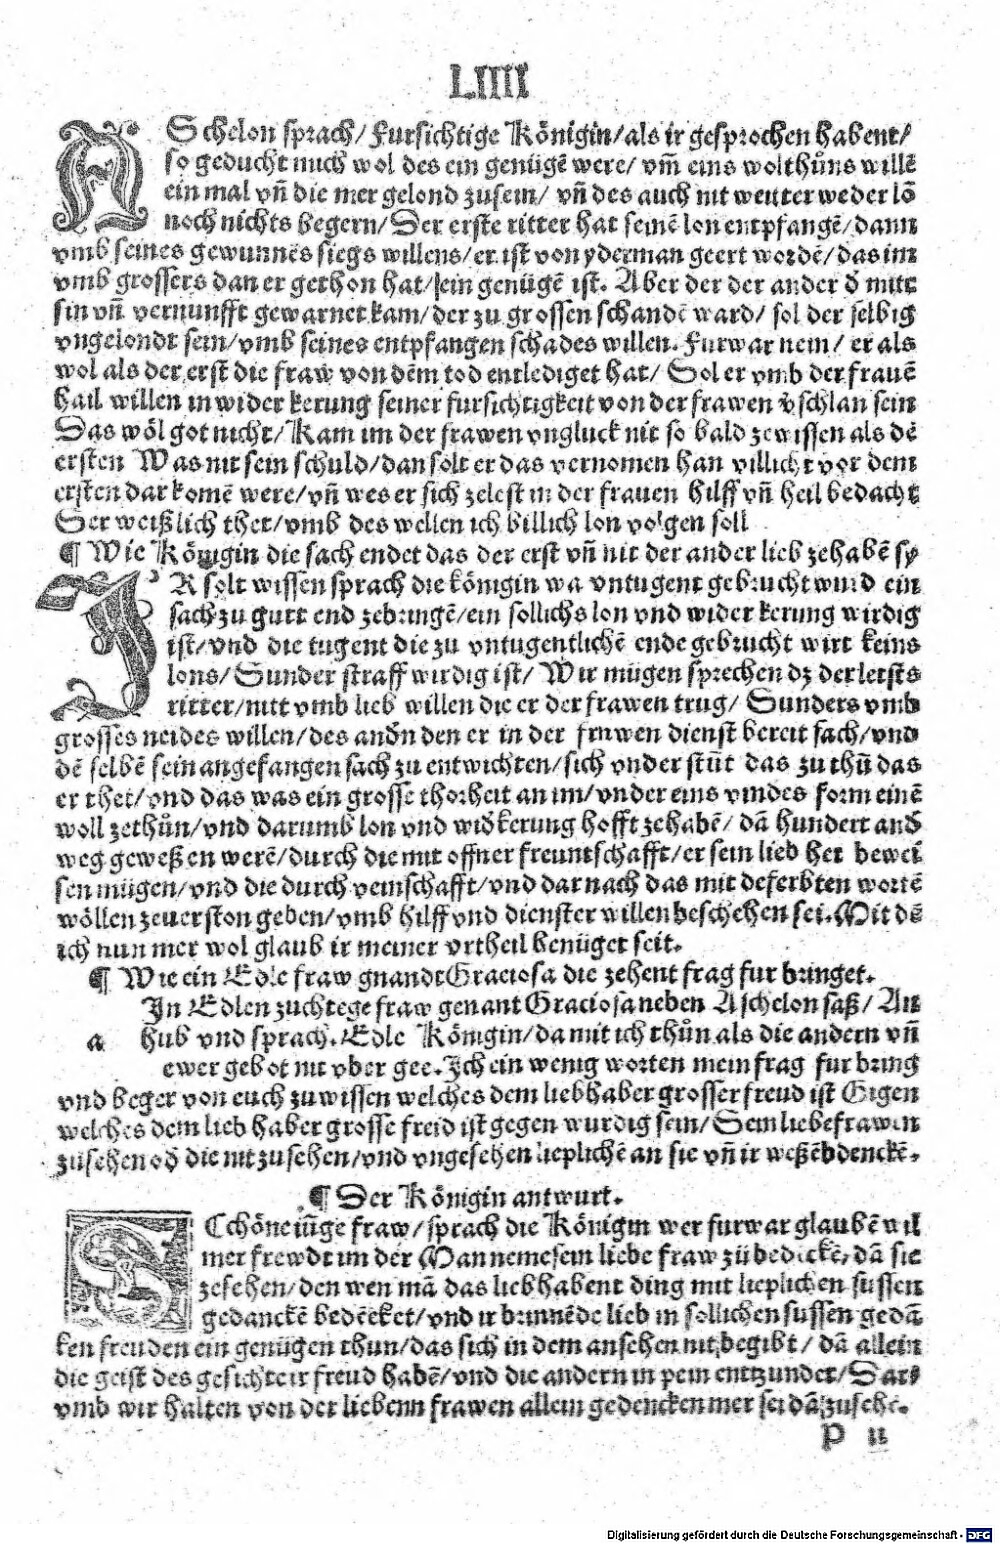 LIIII
ASchelon sprach/ fursichtige Königin/ als ir gesprochen habent/
so geducht mich wol des ein genügẽ were/ vm̃ eins wolthůns willẽ
ein mal vñ die mer gelond zusein/ vñ des auch nit weitter weder lõ
noch nichts begern/ Der erste ritter hat seinẽ lon entpfangẽ/ dann
vmb seines gewunnẽs siegs willens/ er ist von yderman geert wordẽ/ das im
vmb grossers dan er gethon hat/ sein genügẽ ist. Aber der der ander d̕ mitt
sin vñ vernunfft gewarnet kam/ der zu grossen schandẽ ward/ sol der selbig
vngelondt sein/ vmb seines entpfangen schades willen. Furwar nein/ er als
wol als der erst die fraw von dẽm tod entlediget hat/ Sol er vmb der frauẽ
hail willen in wider kerung seiner fursichtigkeit von der frawen v̕schlan sein
Das wöl got nicht/ Kam im der frawen vngluck nit so bald zewissen als dẽ
ersten Was nit sein schuld/ dan solt er das vernomen han villicht vor dem
ersten dar komẽ were/ vñ wes er sich zelest in der frauen hilff vñ heil bedacht
Der weißlich thet/ vmb des wellen ich billich lon volgen soll
¶ Wie Königin die sach endet das der erst vñ nit der ander lieb zehabẽ sy
IR solt wissen sprach die königin wa vntugent gebrucht wurd ein
sach zu gutt end zebringẽ/ ein sollichs lon vnd wider kerung wirdig
ist/ vnd die tugent die zu vntugentlichẽ ende gebrucht wirt keins
lons/ Sunder straff wirdig ist/ Wir mügen sprechen dz der letsts
ritter/ nitt vmb lieb willen die er der frawen trug/ Sunders vmb
grosses neides willen/ des and̕n den er in der frawen dienst bereit sach/ vnd
dẽ selbẽ sein angefangen sach zu entwichten/ sich vnder stũt das zu thũ das
er thet/ vnd das was ein grosse thorheit an im/ vnder eins vindes form einẽ
woll zethůn/ vnd darumb lon vnd wid̕kerung hofft zehabẽ/ dã hundert and̕
weg geweßen werẽ/ durch die mit offner freuntschafft/ er sein lieb het bewei
sen mügen/ vnd die durch veinschafft/ vnd dar nach das mit deferbten wortẽ
wöllen zeuerston geben/ vmb hilff vnd dienster willen beschehen sei. Mit dẽ
ich nun mer wol glaub ir meiner vrtheil benüget seit.
¶ Wie ein Edle fraw gnandt Graciosa die zehent frag fur bringet.
In Edlen zuchtege fraw genant Graciosa neben Aschelon saß/ An
a hub vnd sprach. Edle Königin/ da mit ich thůn als die andern vñ
ewer gebot nit vber gee. Ich ein wenig worten mein frag fur bring
vnd beger von euch zu wissen welches dem liebhaber grosser freud ist Gigen
welches dem lieb haber grosse freid ist gegen wurdig sein/ Sein liebe frawen
zusehen od̕ die nit zu sehen/ vnd vngesehen lieplichẽ an sie vñ ir weßẽ bdenckẽ.
¶ Der Königin antwurt.
SCchöne iũge fraw/ sprach die Königin wer furwar glaubẽ wil
mer frewdt im der Man neme sein liebe fraw zů bedẽckẽ, dã sie
zesehen/ den wen mã das liebhabent ding mit lieplichen sussen
gedanckẽ bedẽcket/ vnd ir brinnẽde lieb in sollichen sussen gedã
ken freuden ein genügen thun/ das sich in dem ansehen nit begibt/ dã allein
die geist des gesichte ir freud habẽ/ vnd die andern in pein entzundet/ Dar
vmb wir halten von der liebenn frawen allein gedencken mer sei dã zusehẽ.
P ii
Digitalisierung gefördert durch die Deutsche Forschungsgemeinschaft - DFG